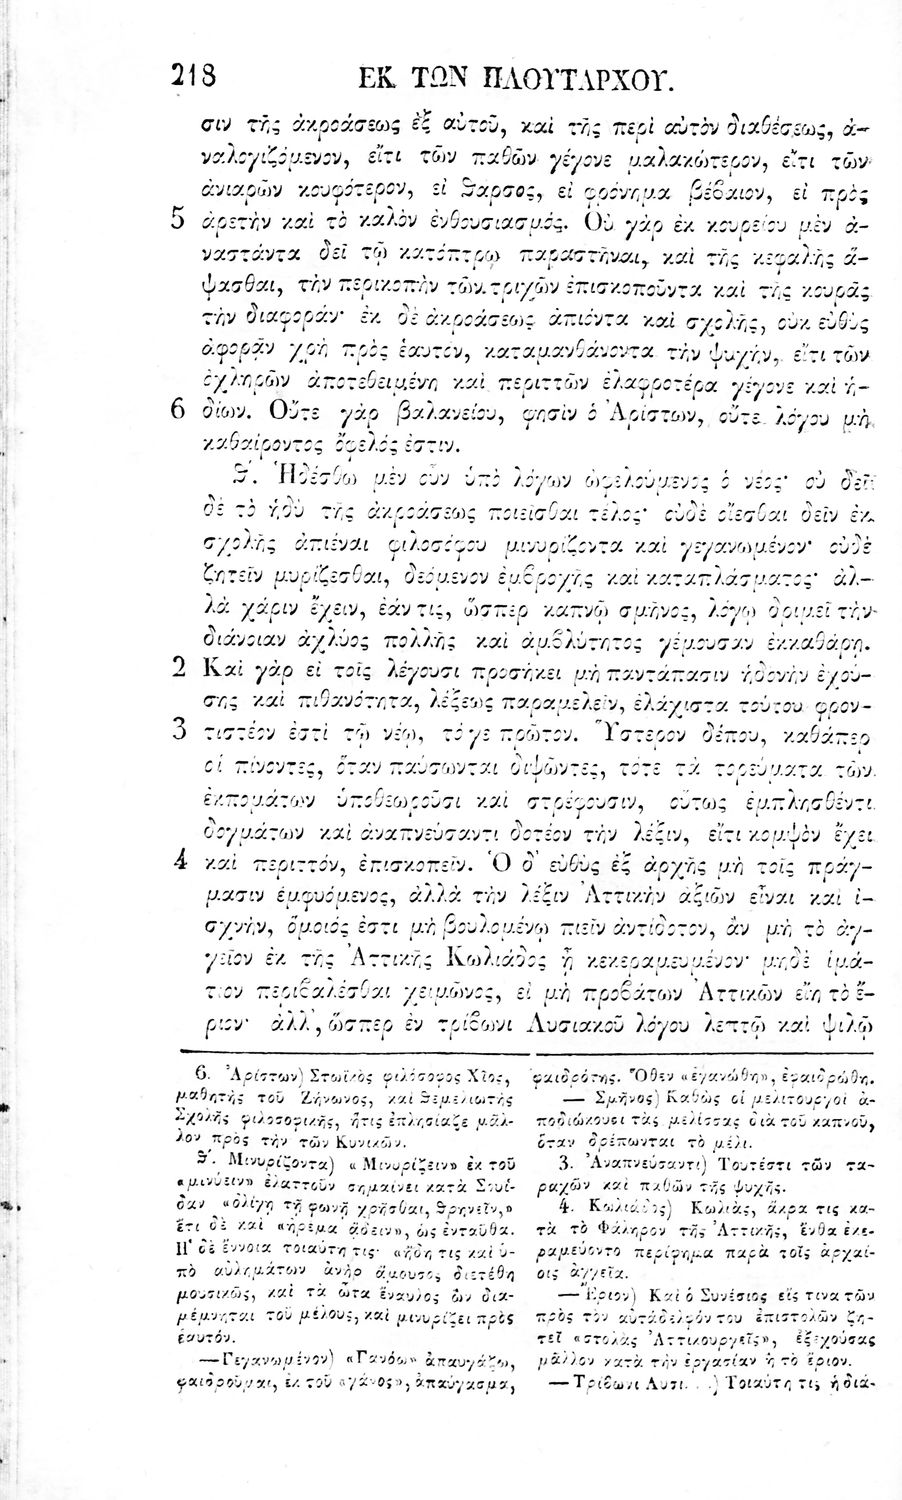 218 ΕΚ ΤΩΝ ΠΛΟΥΤΑΡΧΟΥ.
σιν τῆς ἀκροάσεως ἐξ αὑτοῦ, καὶ τῆς περὶ αὑτὸν διαθέσεως, ἀ-
ναλογιζόμενον, εἴτι τῶν παθῶν γέγονε μαλακώτερον, εἴτι τῶν
ἀνιαρῶν κουφότερον, εἰ θάρσος, εἰ φρόνημα βέβαιον, εἰ πρὸς
5 ἀρετὴν καὶ τὸ καλὸν ἐνθουσιασμός. Οὐ γὰρ ἐκ κουρείου μὲν ἀ-
ναστάντα δεῖ τῷ κατόπτρῳ παραστῆναι, καὶ τῆς κεφαλῆς ἅ-
ψασθαι, τὴν περικοπὴν τῶν τριχῶν ἐπισκοποῦντα καὶ τῆς κουρᾶς
τὴν διαφοράν· ἐκ δὲ ἀκροάσεως ἀπιόντα καὶ σχολῆς, οὐκ εὐθὺς
ἀφορᾷν χρὴ πρὸς ἑαυτὸν, καταμανθάνοντα τὴν ψυχὴν, εἴτι τῶν
ὀχληρῶν ἀποτεθειμένη καὶ περιττῶν ἐλαφροτέρα γέγονε καὶ ἡ-
6 δίων. Οὔτε γὰρ βαλανείου, φησὶν ὁ Ἀρίστων, οὔτε λόγου μὴ
καθαίροντος ὄφελός ἐστιν.
Θʹ. Ἡδέσθω μὲν οὖν ὑπὸ λόγων ὠφελούμενος ὁ νέος· οὐ δεῖ
δὲ τὸ ἡδὺ τῆς ἀκροάσεως ποιεῖσθαι τέλος· οὐδὲ οἴεσθαι δεῖν ἐκ
σχολῆς ἀπιέναι φιλοσόφου μινυρίζοντα καὶ γεγανωμένον· οὐδὲ
ζητεῖν μυρίζεσθαι, δεόμενον ἐμβροχῆς καὶ καταπλάσματος· ἀλ-
λὰ χάριν ἔχειν, ἐάν τις, ὥσπερ καπνῷ σμῆνος, λόγῳ δριμεῖ τὴν
διάνοιαν ἀχλύος πολλῆς καὶ ἀμβλύτητος γέμουσαν ἐκκαθάρῃ.
2 Καὶ γὰρ εἰ τοῖς λέγουσι προσήκει μὴ παντάπασιν ἡδονὴν ἐχού-
σης καὶ πιθανότητα, λέξεως παραμελεῖν, ἐλάχιστα τούτου φρον-
3 τιστέον ἐστὶ τῷ νέῳ, τό γε πρῶτον. Ὕστερον δέπου, καθάπερ
οἱ πίνοντες, ὅταν παύσωνται διψῶντες, τότε τὰ τορεύματα τῶν
ἐκπομάτων ὑποθεωροῦσι καὶ στρέφουσιν, οὕτως ἐμπλησθέντι
δογμάτων καὶ ἀναπνεύσαντι δοτέον τὴν λέξιν, εἴτι κομψὸν ἔχει
4 καὶ περιττόν, ἐπισκοπεῖν. Ὁ δ᾽ εὐθὺς ἐξ ἀρχῆς μὴ τοῖς πράγ-
μασιν ἐμφυόμενος, ἀλλὰ τὴν λέξιν Ἀττικὴν ἀξιῶν εἶναι καὶ ἰ-
σχνὴν, ὅμοιός ἐστι μὴ βουλομένῳ πιεῖν ἀντίδοτον, ἂν μὴ τὸ ἀγ-
γεῖον ἐκ τῆς Ἀττικῆς Κωλιάδος ᾖ κεκεραμευμένον· μηδὲ ἱμά-
τιον περιβαλέσθαι χειμῶνος, εἰ μὴ προβάτων Ἀττικῶν εἴη τὸ ἔ-
ριον· ἀλλ᾽, ὥσπερ ἐν τρίβωνι Λυσιακοῦ λόγου λεπτῷ καὶ ψιλῷ
6. Ἀρίστων) Στωϊκὸς φιλόσοφος Χῖος,
μαθητὴς τοῦ Ζήνωνος, καὶ θεμελιωτὴς
Σχολῆς φιλοσοφικῆς, ἥτις ἐπλησίαζε μᾶλ-
λον πρὸς τὴν τῶν Κυνικῶν.
Θʹ. Μινυρίζοντα) «Μινυρίζειν» ἐκ τοῦ
«μινύειν» ἐλαττοῦν σημαίνει κατὰ Σουί-
δαν «ὀλίγῃ τῇ φωνῇ χρῆσθαι, θρηνεῖν,»
ἔτι δὲ καὶ «ἠρέμα ᾄδειν», ὡς ἐνταῦθα.
Ἡ δὲ ἔννοια τοιαύτη τις· «ἤδη τις καὶ ὑ-
πὸ αὐλημάτων ἀνὴρ ἄμουσος διετέθη
μουσικῶς, καὶ τὰ ὦτα ἔναυλος ὢν δια-
μέμνηται τοῦ μέλους, καὶ μινυρίζει πρὸς
ἑαυτόν.
—Γεγανωμένον) «Γανόω» ἀπαυγάζω,
φαιδροῦμαι, ἐκ τοῦ «γάνος», ἀπαύγασμα,
φαιδρότης. Ὅθεν «ἐγανώθη», ἐφαιδρώθη.
— Σμῆνος) Καθὼς οἱ μελιτουργοὶ ἀ-
ποδιώκουσι τὰς μελίσσας διὰ τοῦ καπνοῦ,
ὅταν δρέπωνται τὸ μέλι.
3. Ἀναπνεύσαντι) Τουτέστι τῶν τα-
ραχῶν καὶ παθῶν τῆς ψυχῆς.
4. Κωλιάδος) Κωλιὰς, ἄκρα τις κα-
τὰ τὸ Φάληρον τῆς Ἀττικῆς, ἔνθα ἐκε-
ραμεύοντο περίφημα παρὰ τοῖς ἀρχαί-
οις ἀγγεῖα.
—Ἔριον) Καὶ ὁ Συνέσιος εἴς τινα τῶν
πρὸς τὸν αὐτάδελφόν του ἐπιστολῶν ζη-
τεῖ «στολὰς Ἀττικουργεῖς», ἐξεχούσας
μᾶλλον κατὰ τὴν ἐργασίαν ἢ τὸ ἔριον.
—Τρίβωνι Λυσι. . .) Τοιαύτη τις ἡ διά-